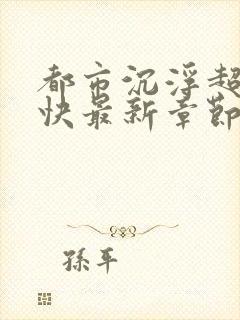 都市沉浮超
快最新章節
孫平